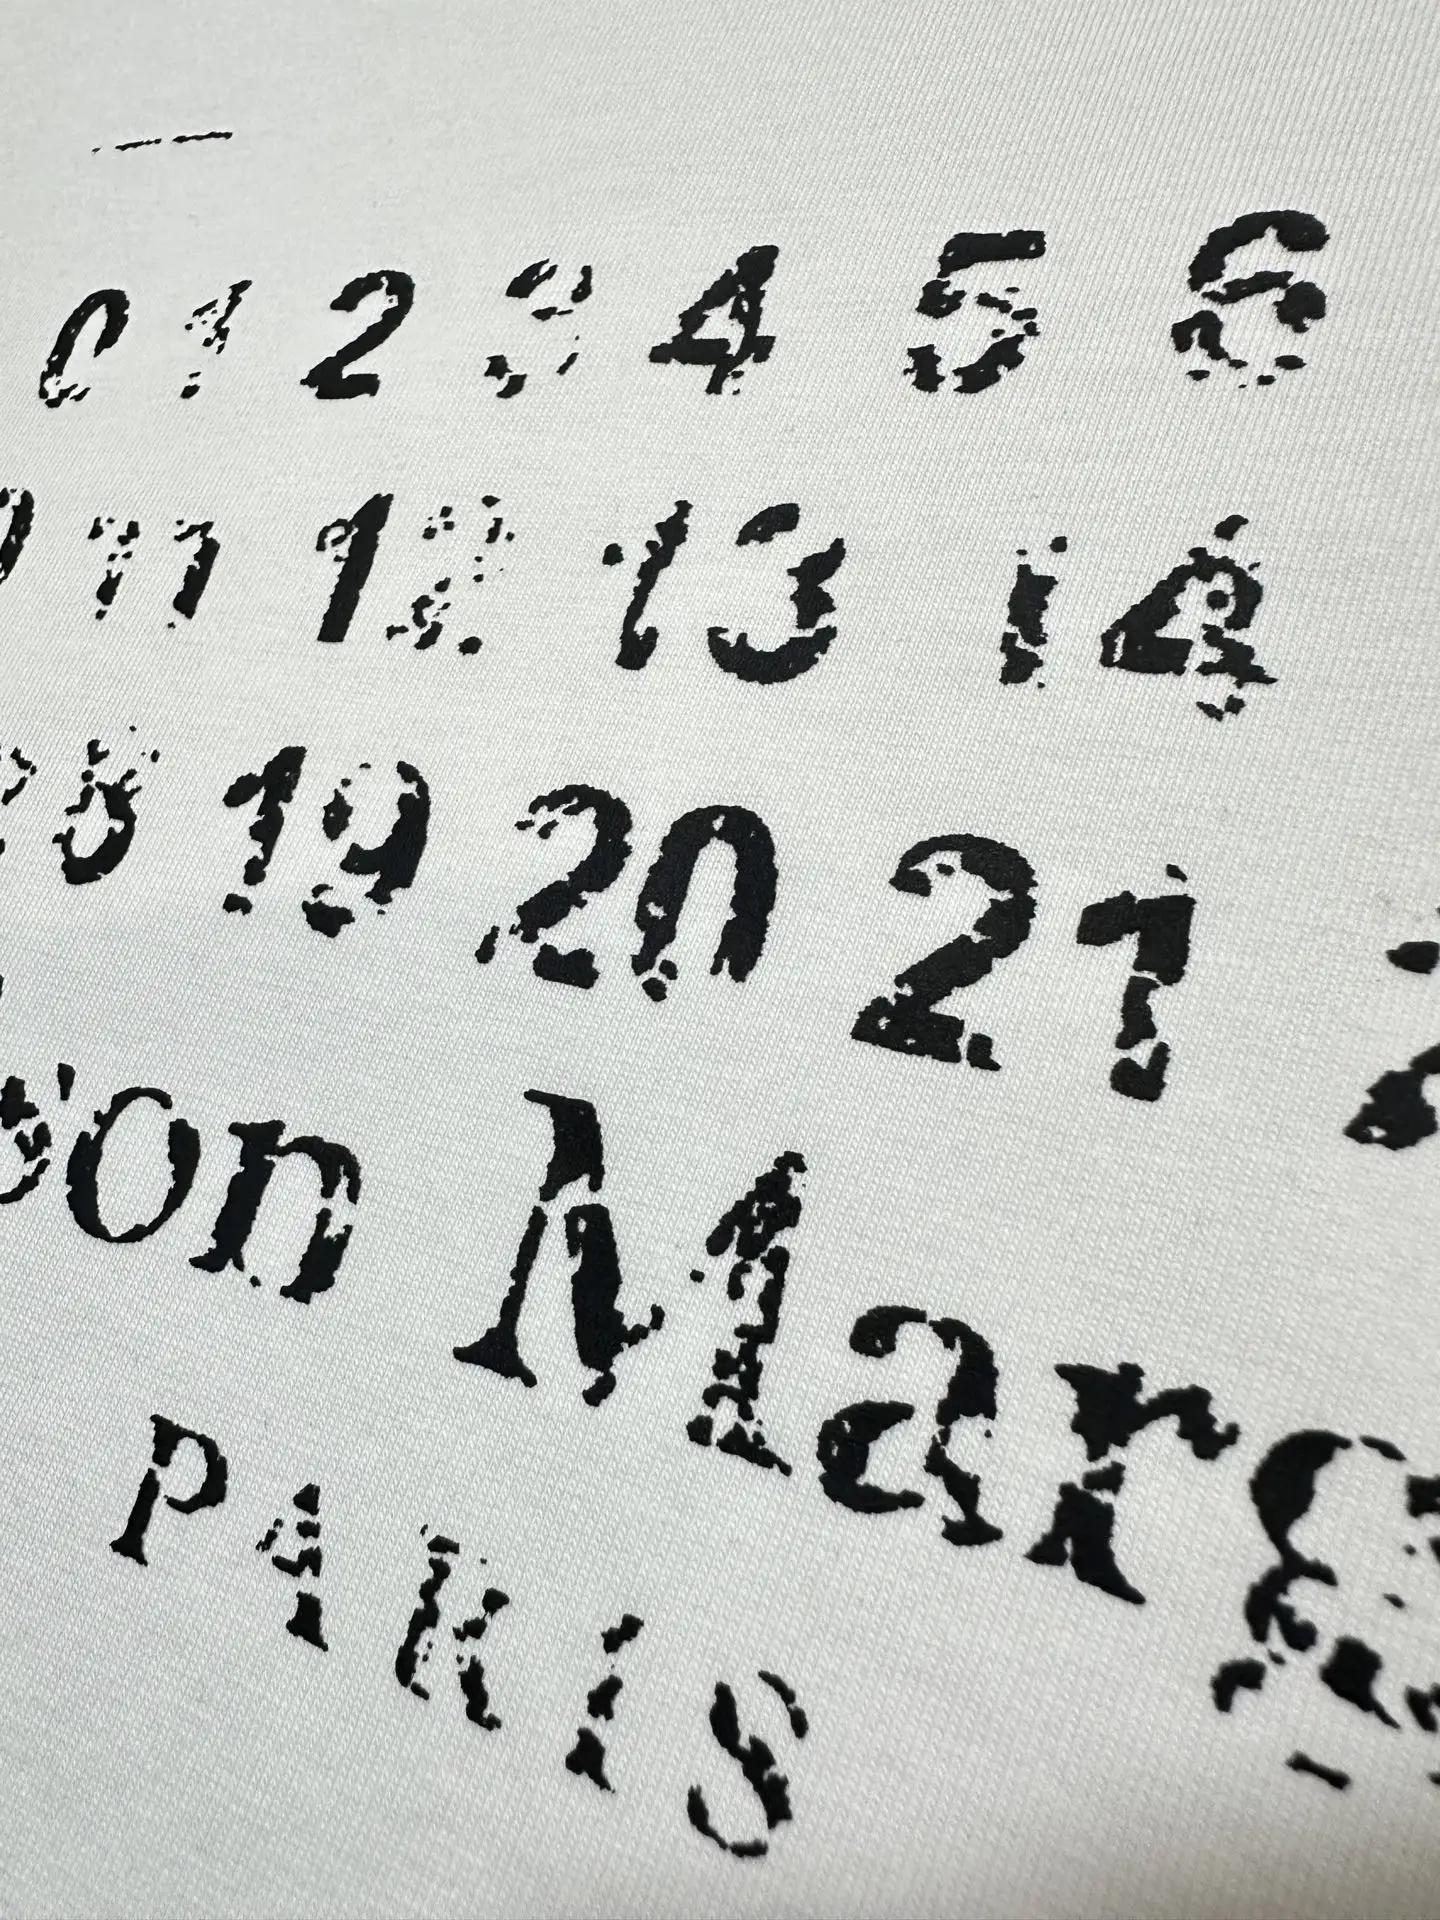 0 1 2 3 4 5 6
11 12 13 14
8 19 20 21 2
son Marg
PARIS